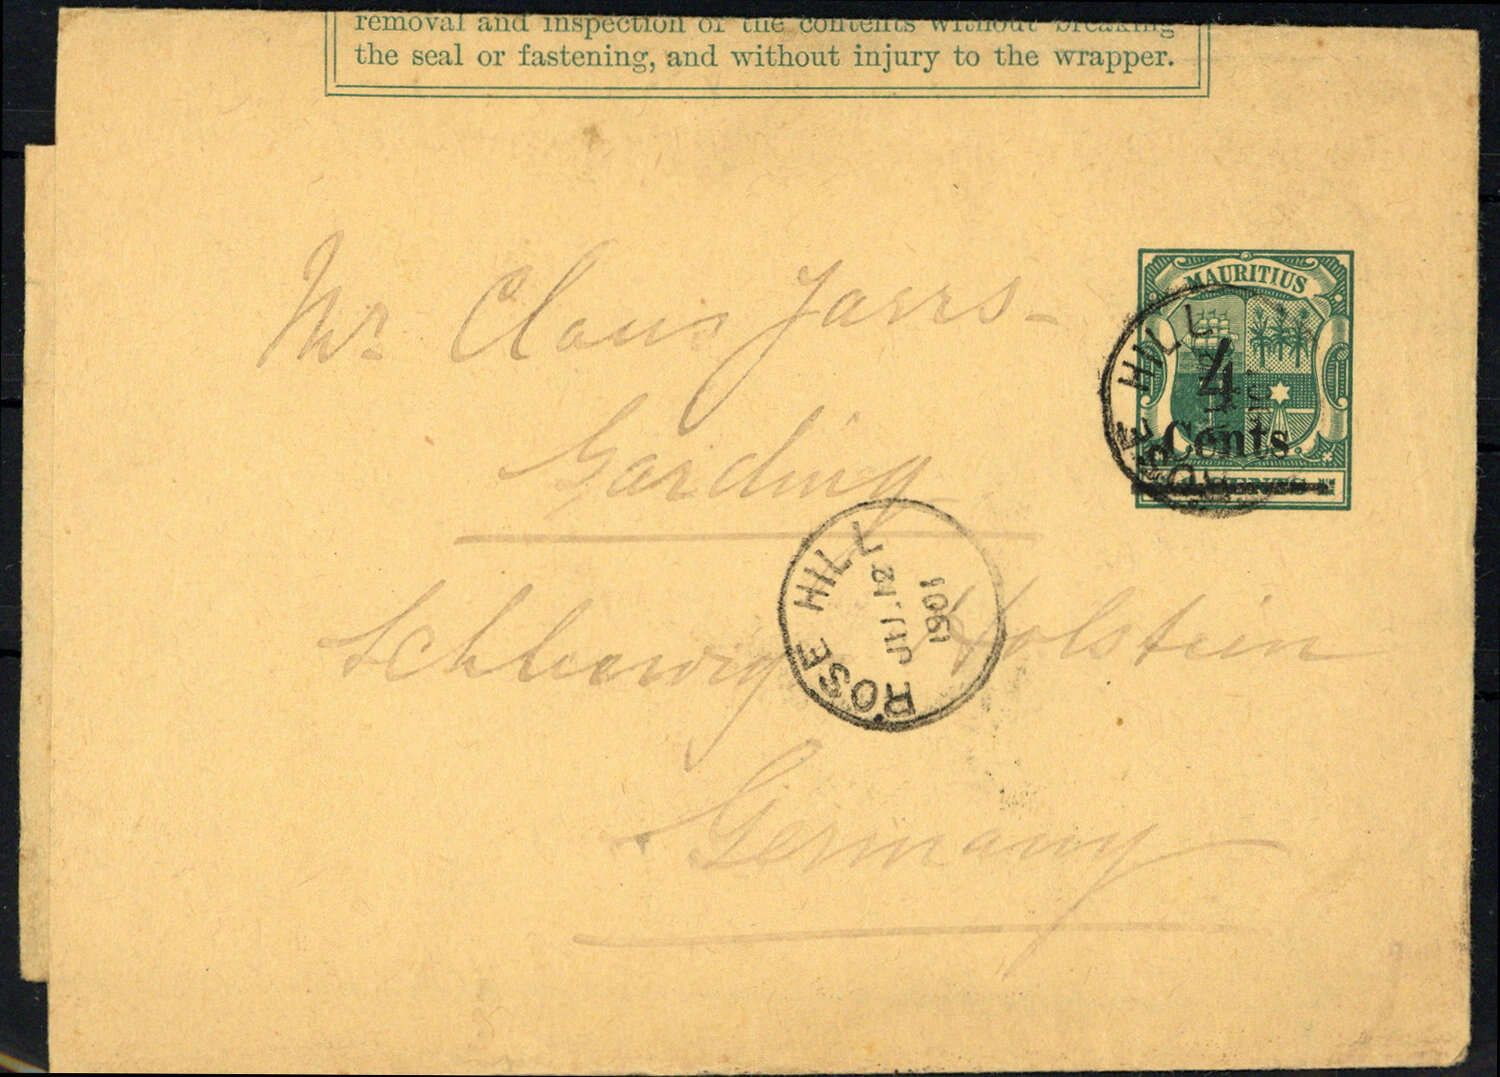 removal and inspection of the contents without breaking
the seal or fastening, and without injury to the wrapper.
MAURITIUS
4
Cents
ROSE HILL
Mr. Claus Jarrs-
Garding
ROSE HILL
JU 12
1901
Schleswig Holstein
Germany